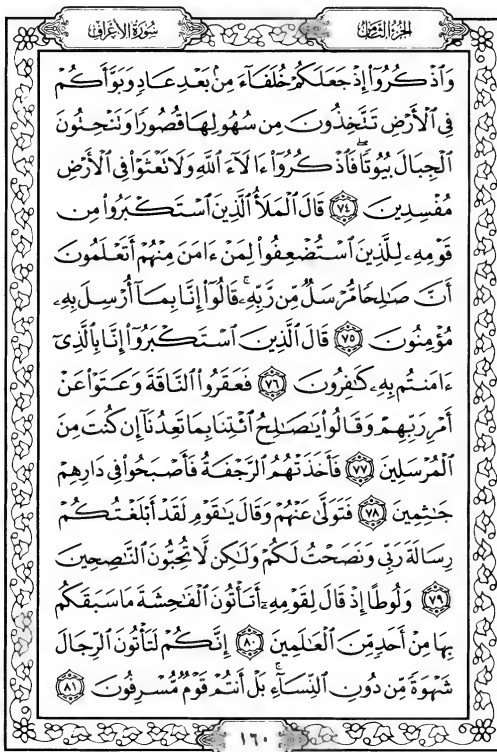 الجزء الثامن
سورة الأعراف
وَٱذْكُرُوٓا۟ إِذْ جَعَلَكُمْ خُلَفَآءَ مِنۢ بَعْدِ عَادٍ وَبَوَّأَكُمْ
فِى ٱلْأَرْضِ تَتَّخِذُونَ مِن سُهُولِهَا قُصُورًا وَتَنْحِتُونَ
ٱلْجِبَالَ بُيُوتًا ۖ فَٱذْكُرُوٓا۟ ءَالَآءَ ٱللَّهِ وَلَا تَعْثَوْا۟ فِى ٱلْأَرْضِ
مُفْسِدِينَ ٧٤ قَالَ ٱلْمَلَأُ ٱلَّذِينَ ٱسْتَكْبَرُوا۟ مِن
قَوْمِهِۦ لِلَّذِينَ ٱسْتُضْعِفُوا۟ لِمَنْ ءَامَنَ مِنْهُمْ أَتَعْلَمُونَ
أَنَّ صَـٰلِحًا مُّرْسَلٌ مِّن رَّبِّهِۦ ۚ قَالُوٓا۟ إِنَّا بِمَآ أُرْسِلَ بِهِۦ
مُؤْمِنُونَ ٧٥ قَالَ ٱلَّذِينَ ٱسْتَكْبَرُوٓا۟ إِنَّا بِٱلَّذِىٓ
ءَامَنتُم بِهِۦ كَـٰفِرُونَ ٧٦ فَعَقَرُوا۟ ٱلنَّاقَةَ وَعَتَوْا۟ عَنْ
أَمْرِ رَبِّهِمْ وَقَالُوا۟ يَـٰصَـٰلِحُ ٱئْتِنَا بِمَا تَعِدُنَآ إِن كُنتَ مِنَ
ٱلْمُرْسَلِينَ ٧٧ فَأَخَذَتْهُمُ ٱلرَّجْفَةُ فَأَصْبَحُوا۟ فِى دَارِهِمْ
جَـٰثِمِينَ ٧٨ فَتَوَلَّىٰ عَنْهُمْ وَقَالَ يَـٰقَوْمِ لَقَدْ أَبْلَغْتُكُمْ
رِسَالَةَ رَبِّى وَنَصَحْتُ لَكُمْ وَلَـٰكِن لَّا تُحِبُّونَ ٱلنَّـٰصِحِينَ
٧٩ وَلُوطًا إِذْ قَالَ لِقَوْمِهِۦٓ أَتَأْتُونَ ٱلْفَـٰحِشَةَ مَا سَبَقَكُم
بِهَا مِنْ أَحَدٍ مِّنَ ٱلْعَـٰلَمِينَ ٨٠ إِنَّكُمْ لَتَأْتُونَ ٱلرِّجَالَ
شَهْوَةً مِّن دُونِ ٱلنِّسَآءِ ۚ بَلْ أَنتُمْ قَوْمٌ مُّسْرِفُونَ ٨١
١٦٠